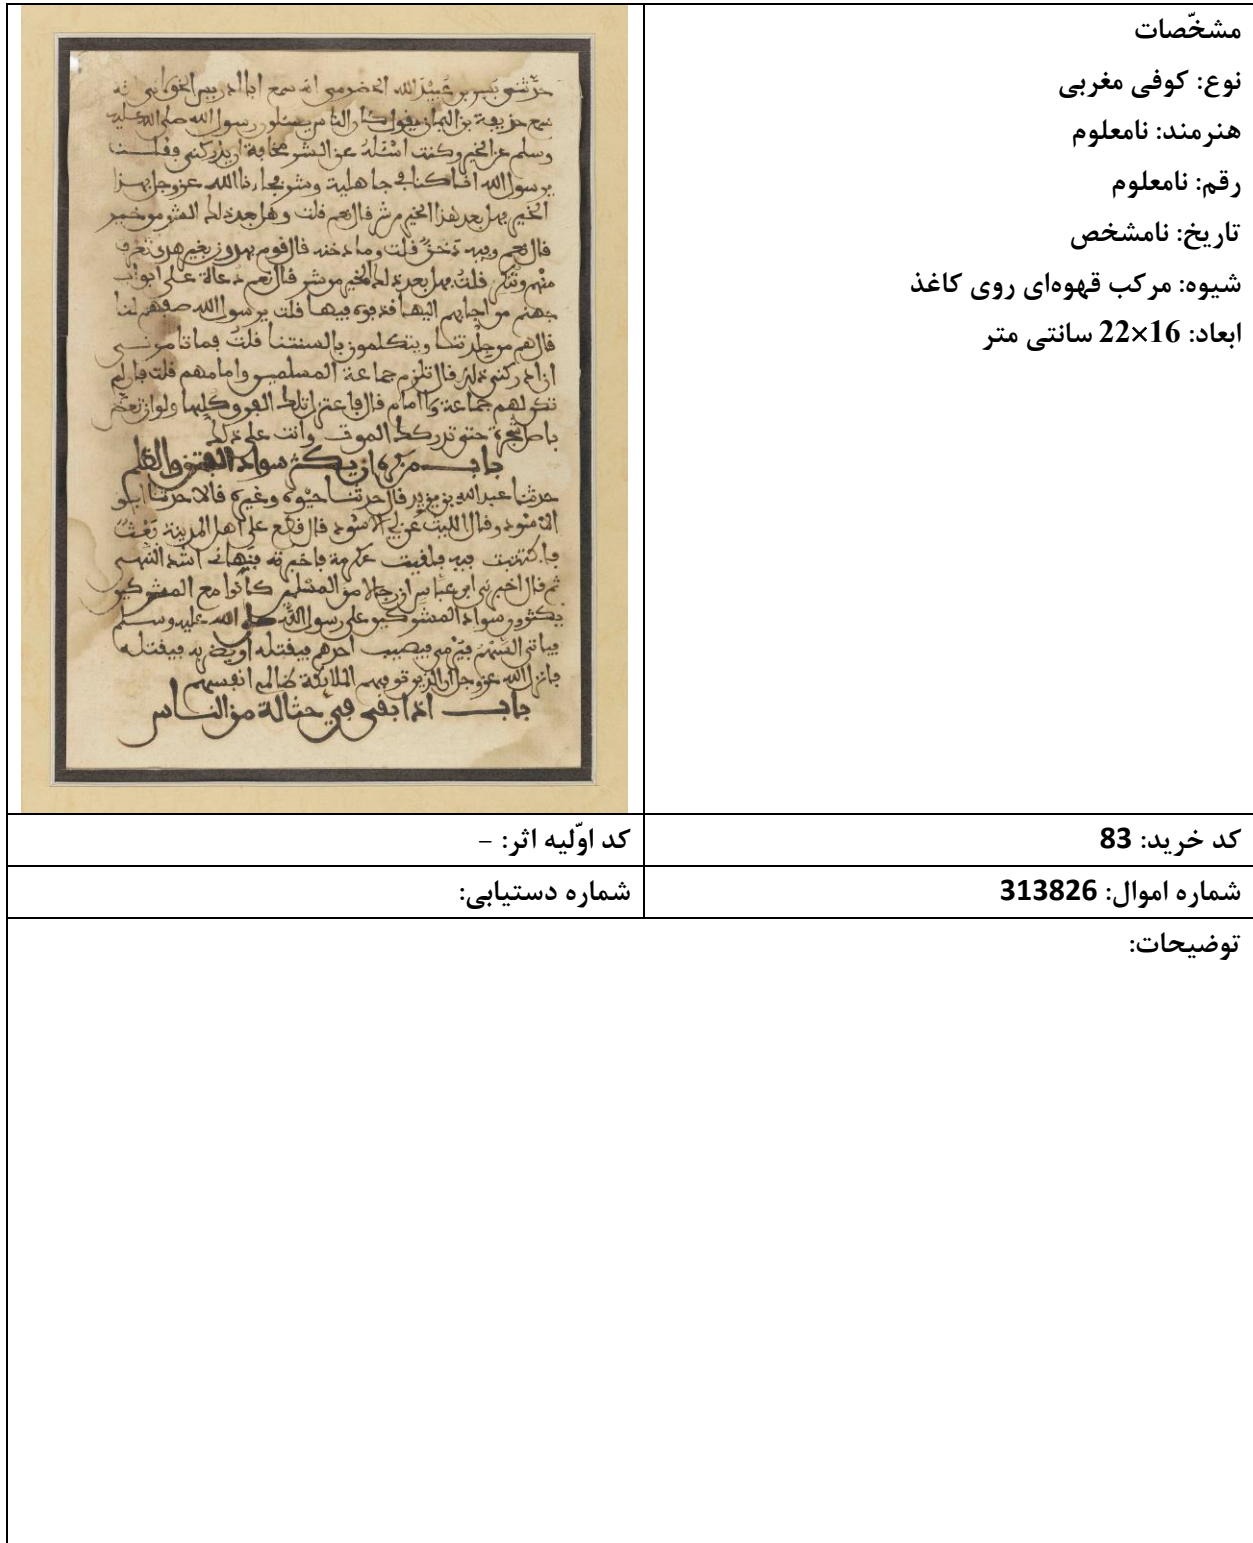 مشخّصات
نوع: کوفی مغربی
هنرمند: نامعلوم
رقم: نامعلوم
تاریخ: نامشخص
شیوه: مرکب قهوه‌ای روی کاغذ
ابعاد: 16×22 سانتی متر
حدثني بسر بن عبيد الله الحضرمي انه سمع ابا ادريس الخولاني انه
سمع حذيفة بن اليمان يقول كان الناس يسئلون رسول الله صلى الله عليه
وسلم عن الخير وكنت اسئله عن الشر مخافة ان يدركني فقلت
يرسول الله انا كنا في جاهلية وشر فجاءنا الله عزوجل بهذا
الخير فهل بعد هذا الخير من شر قال نعم قلت وهل بعد ذلك الشر من خير
قال نعم وفيه دخن قلت وما دخنه قال قوم يهدون بغير هدي تعرف
منهم وتنكر قلت فهل بعد ذلك الخير من شر قال نعم دعاة على ابواب
جهنم من اجابهم اليها قذفوه فيها قلت يرسول الله صفهم لنا
قال هم من جلدتنا ويتكلمون بالسنتنا قلت فما تامرني
ان ادركني ذلك قال تلزم جماعة المسلمين وامامهم قلت فان لم
تكن لهم جماعة ولا امام قال فاعتزل تلك الفرق كلها ولو ان تعض
باصل شجرة حتى يدركك الموت وانت على ذلك
باب من كره ان يكثر سواد الفتن والظلم
حدثنا عبد الله بن يزيد قال حدثنا حيوة وغيره قالا حدثنا ابو
الاسود وقال الليث عن ابي الاسود قال قطع على اهل المدينة بعث
فاكتتبت فيه فلقيت عكرمة فاخبرته فنهاني اشد النهي
ثم قال اخبرني ابن عباس ان رجالا من المسلمين كانوا مع المشركين
يكثرون سواد المشركين على رسول الله صلى الله عليه وسلم
فياتي السهم فيرمى فيصيب احدهم فيقتله او يضربه فيقتله
فانزل الله عزوجل ان الذين توفيهم الملائكة ظالمي انفسهم
باب اذا بقي في حثالة من الناس
کد خرید: 83
کد اوّلیه اثر: -
شماره اموال: 313826
شماره دستیابی:
توضیحات: